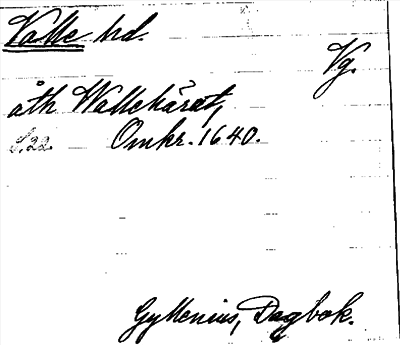 Valle hd.
Vg.
åth Wallehärat,
S. 22. Omkr. 1640.
Gyllenius, Dagbok.